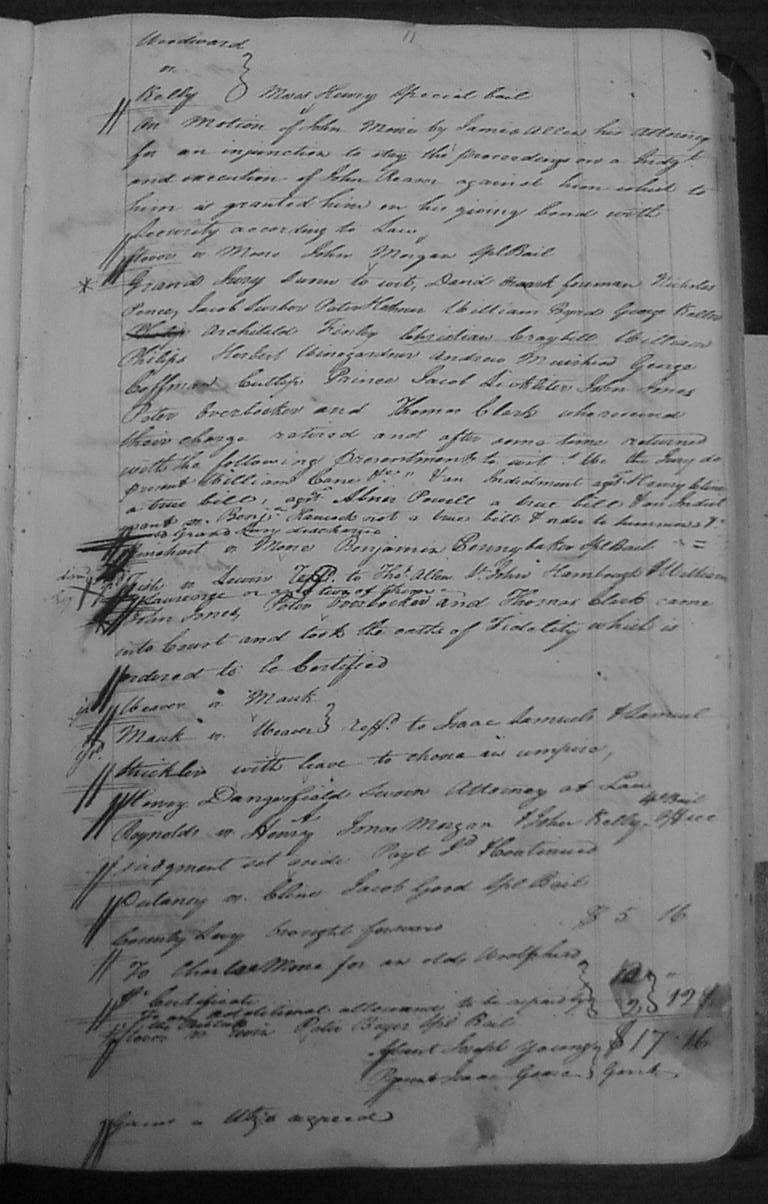 11
Woodward
vs.
Kelly } Moses Henry Special bail
On Motion of John Moore by James Allen his Attorney
for an injunction to stay the proceedings on a Judgt.
and execution of John Reason against him which to
him is granted him on his giving bond with
Security according to Law
vs Moore John Morgan Spl Bail
Grand Jury Sworn to wit, David foreman Nicholas
Pence, Jacob Peter William Byrd George
Archibald Finley Christian Graybill William
Philips Herbert Winegardner Andrew George
Coffman Cutlip Prince Jacob John Jones
Peter Overbocker and Thomas Clark who received
their charge retired and after some time returned
with the following Presentments to wit. We the Jury do
present William Cane &c. & an Indictment agt. Henry
a true bill, agt. Abner Powell a true bill & an Indict
ment vs. Benja. Hancock not a true bill & order to summons &c
Grand Jury discharged
Rinehart vs Mone Benjamin Pennybaker Spl Bail
vs Lewin Reffd. to Thos. Allen John Hambough & William
Lawrence or any two of them
John Jones, Peter Overbocker and Thomas Clark came
into Court and took the oaths of Fidelity which is
ordered to be Certified
Weaver vs Mauk
Mauk vs. Weaver } reffd. to Isaac Samuels & Samuel
Strickler with leave to chose an umpire,
Henry Dangerfield Sworn Attorney at Law
Reynolds vs Henry Jonas Morgan & John Kelly Spl Bail Office
judgment set aside Payt Jd & Continued
Dulaney vs. Cline Jacob Good Spl Bail
County Levy brought forward $ 5 16
To Charles Mone for an old Woolfhead
& Certificate
To an additional allowance to be repaid by
vs Peter Boyer Spl Bail
$ 17 16
Absent Joseph
Present Isaac } Gent.
vs Utz agreed